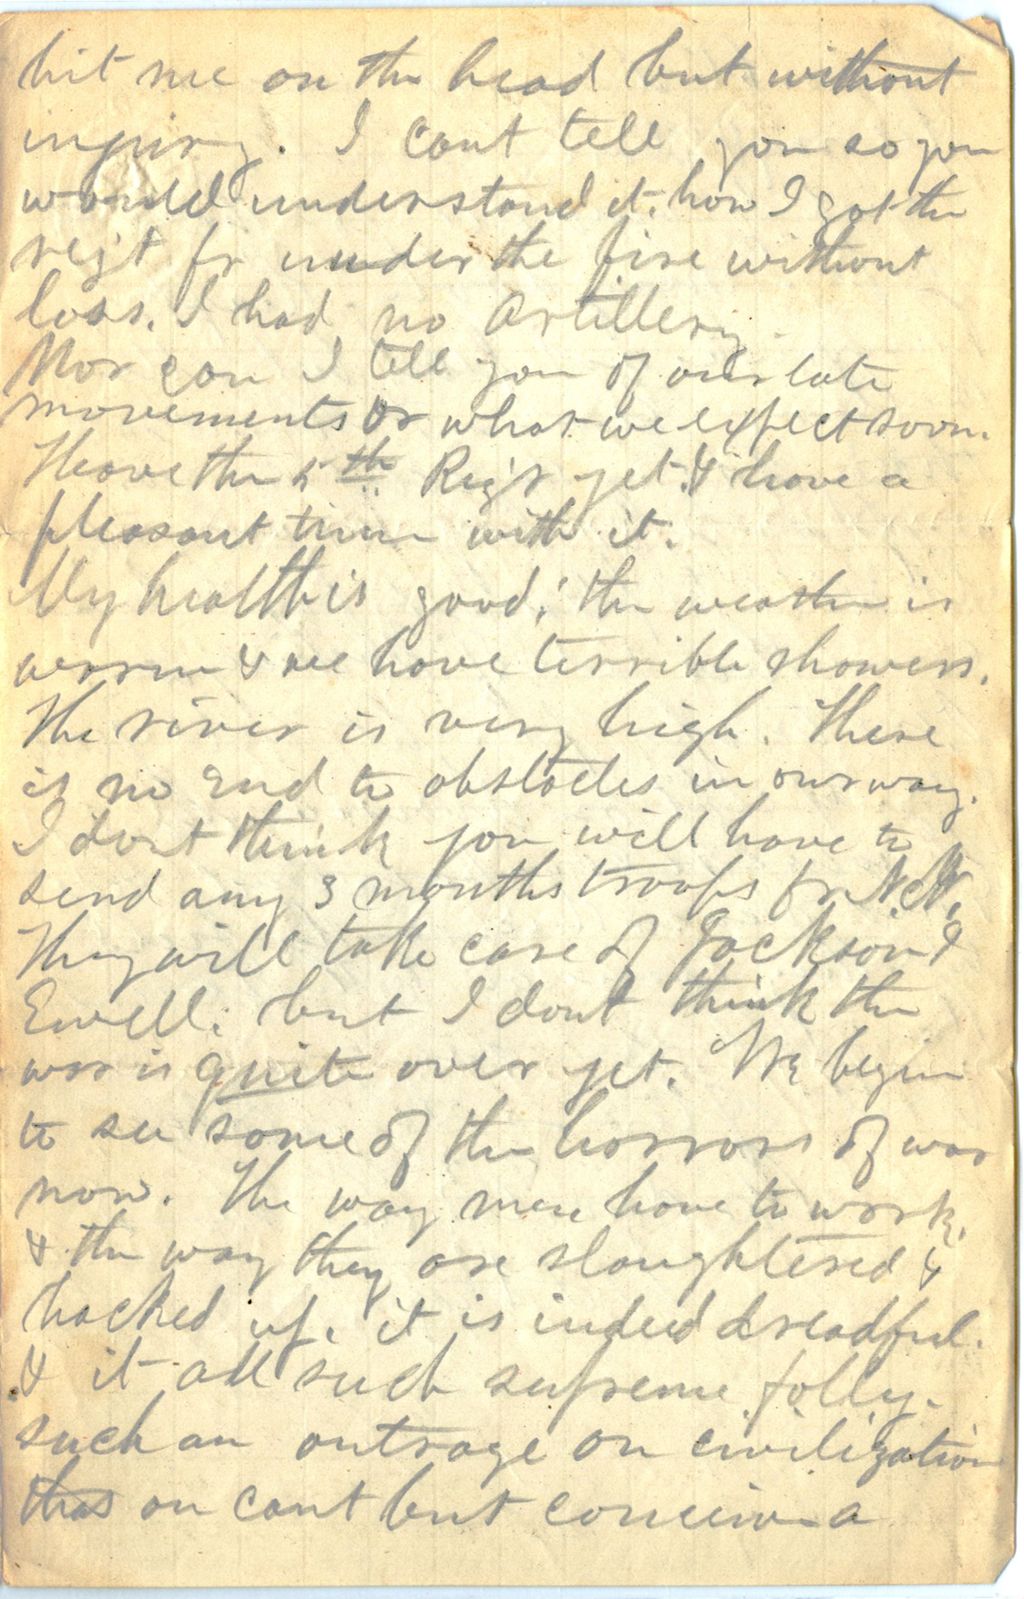 hit me on the head but without
injury. I cant tell you so you
would understand it, how I got the
regt fr under the fire without
loss. I had no Artillery.
Nor can I tell you of our late
movements or what we expect soon.
I have the 5th Reg't yet, & have a
pleasant time with it.
My health is good; the weather is
warm & we have terrible showers.
The river is very high. There
is no end to obstacles in our way.
I dont think you will have to
send any 3 months troops fr N.H.
They will take care of Jackson &
Ewell; but I dont think the
war is quite over yet. We begin
to see some of the horrors of war
now. The way men have to work,
& the way they are slaughtered &
hacked up, it is indeed dreadful.
& it all such supreme folly.
such an outrage on civilization
that on cant but conceive a